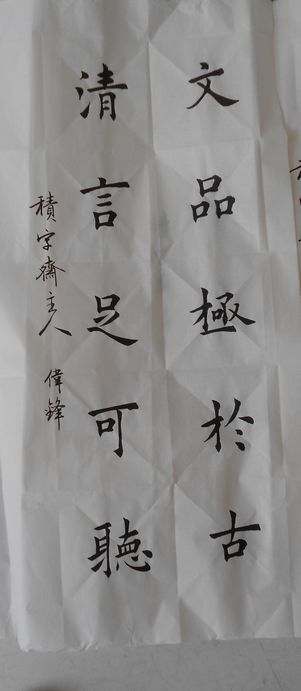 文品極於古
清言足可聽
積字齋主人 偉鋒